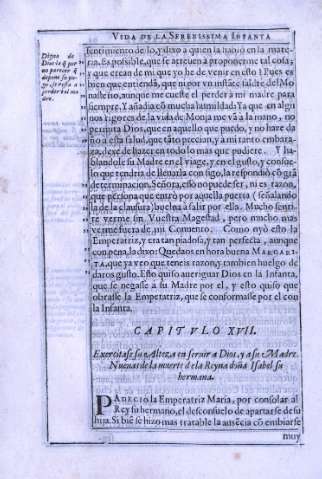 VIDA DE LA SERENISSIMA INFANTA
Dexa de
Dios lo q̃ por
no parecer q̃
depone su
perder a su ma
dre.
sentimento de lo, y dixo a quien la habló en la mate-
ria. Es posible, que se atreuen a proponerme tal cosa;
y que crean de mi que yo he de venir en esto? Pues es
bien que entiendã, que ni por vn instãte saldre del Mo
nasterio, aunque me cueste el perder a mi madre para
siempre. Y añadia cõ mucha humildad: Ya que en algu
nos rigores de la vida de Monja me và a la mano, no
permita Dios, que en aquello que puedo, y no hare da
ño a esta salud, que tãto precian, y a mi tanto embara-
ça, dexe de hazer en todo lo mas que pudiere. Y ha-
blandole su Madre en el viage, y en el gusto, y consue
lo que tendria de lleuarla con sigo, la respondiò cõ grã
determinacion. Señora, esso no puede ser, ni es razon,
que persona que entrò por aquella puerta (señalando
la de la clausura) buelua a salir por ella. Mucho senti-
rè verme sin Vuestra Magestad, pero mucho mas
verme fuera de mi Conuento. Como oyò esto la
Emperatriz, y era tan piadosa, y tan perfecta, aunque
con pena, lo dixo: Quedaos en hora buena MARGARI-
TA, que ya veo que teneis razon, y tambien huelgo de
daros gusto. Esto quiso aueriguar Dios en la Infanta,
que se negasse a su Madre por el, y esto quiso que
obrasse la Emperatriz, que se conformasse por el con
la Infanta.
CAPITVLO XVII.
Exercitase su Alteza en seruir a Dios, y a su Madre.
Nueuas de la muerte de la Reyna doña Isabel su
hermana.
PADECIO la Emperatriz Maria, por consolar al
Rey su hermano, el desconsuelo de apartarse de su
hija. Si biẽ se hizo mas tratable la ausẽcia cõ embiarse
muy